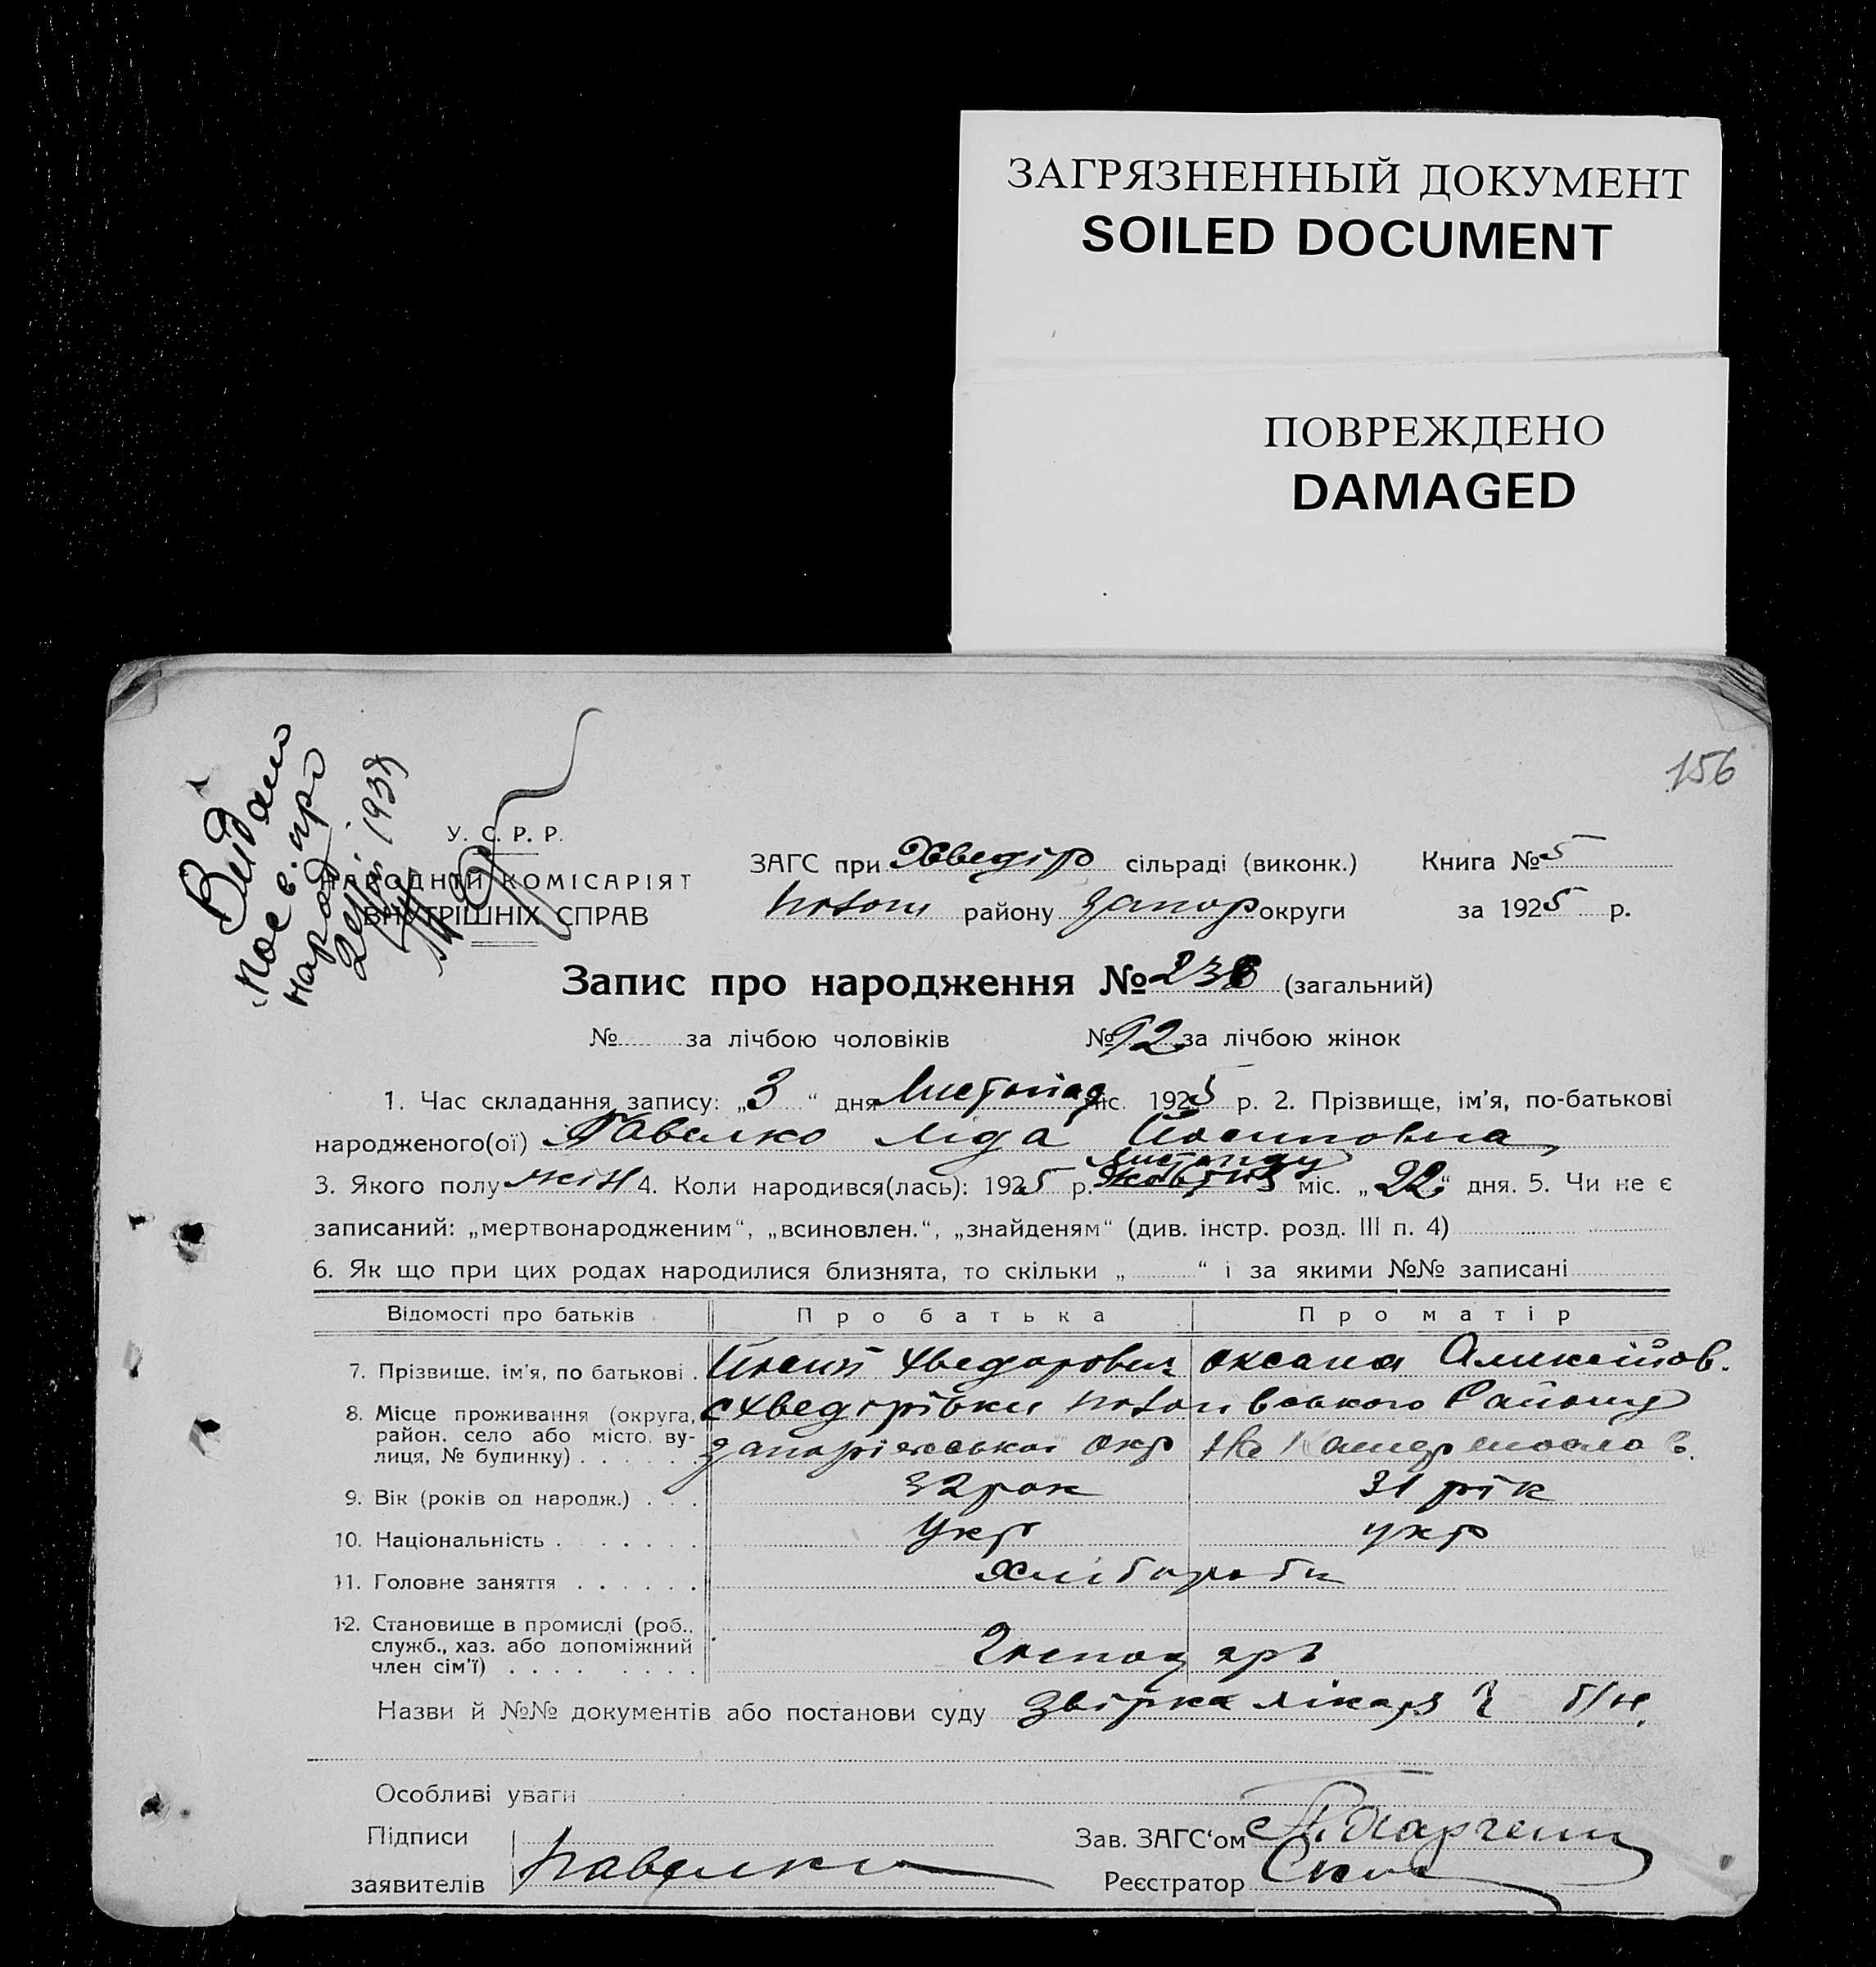 ЗАГРЯЗНЕННЫЙ ДОКУМЕНТ
SOILED DOCUMENT
ПОВРЕЖДЕНО
DAMAGED
156
Видано
посв. про
народ
1939
У. С. Р. Р.
НАРОДНІЙ КОМІСАРІЯТ
ВНУТРІШНІХ СПРАВ
ЗАГС при Хведір сільраді (виконк.) Книга № 5
району Запор округи за 1925 р.
Запис про народження № 238 (загальний)
№ за лічбою чоловіків № 92 за лічбою жінок
1. Час складання запису: „3“ дня Листопад міс. 1925 р. 2. Прізвище, ім'я, по-батькові
народженого(ої) Павелко Ліда Йосиповна
Листопаду
3. Якого полу жін 4. Коли народився(лась): 1925 р. Жовтня міс. „22“ дня. 5. Чи не є
записаний: „мертвонародженим“, „всиновлен.“, „знайденям“ (див. інстр. розд. III п. 4)
6. Як що при цих родах народилися близнята, то скільки „ “ і за якими №№ записані
Відомості про батьків Про батька Про матір
7. Прізвище, ім'я, по батькові . Йосип Хведорович Оксана Олексійов.
8. Місце проживання (округа, с Хведорівки Района
район, село або місто, ву-
лиця, № будинку) . . . . . . Запоріжської окр
9. Вік (років од народж.) . . . 32 рок 31 рік
10. Національність . . . . . . Укр укр
11. Головне заняття . . . . . . Хлібороби
12. Становище в промислі (роб.,
служб., хаз. або допоміжний
член сім'ї) . . . . . . . . Господарь
Назви й №№ документів або постанови суду лікаря б/н.
Особливі уваги
Підписи
Зав. ЗАГС'ом
заявителів Павелко
Реєстратор